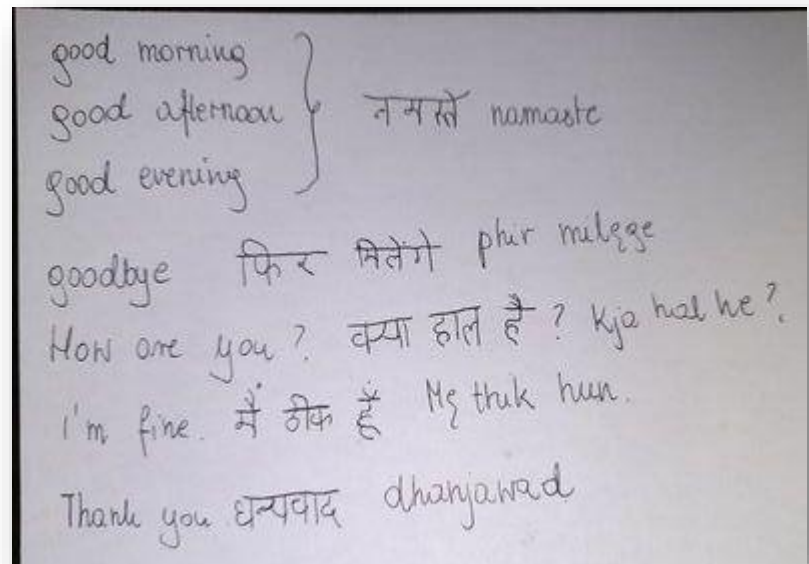 good morning
good afternoon } नमस्ते namaste
good evening
goodbye फिर मिलेंगे phir milęge
How are you? क्या हाल है? Kja hal he?
I'm fine. मैं ठीक हूँ Mę thik hun.
Thank you धन्यवाद dhanjawad